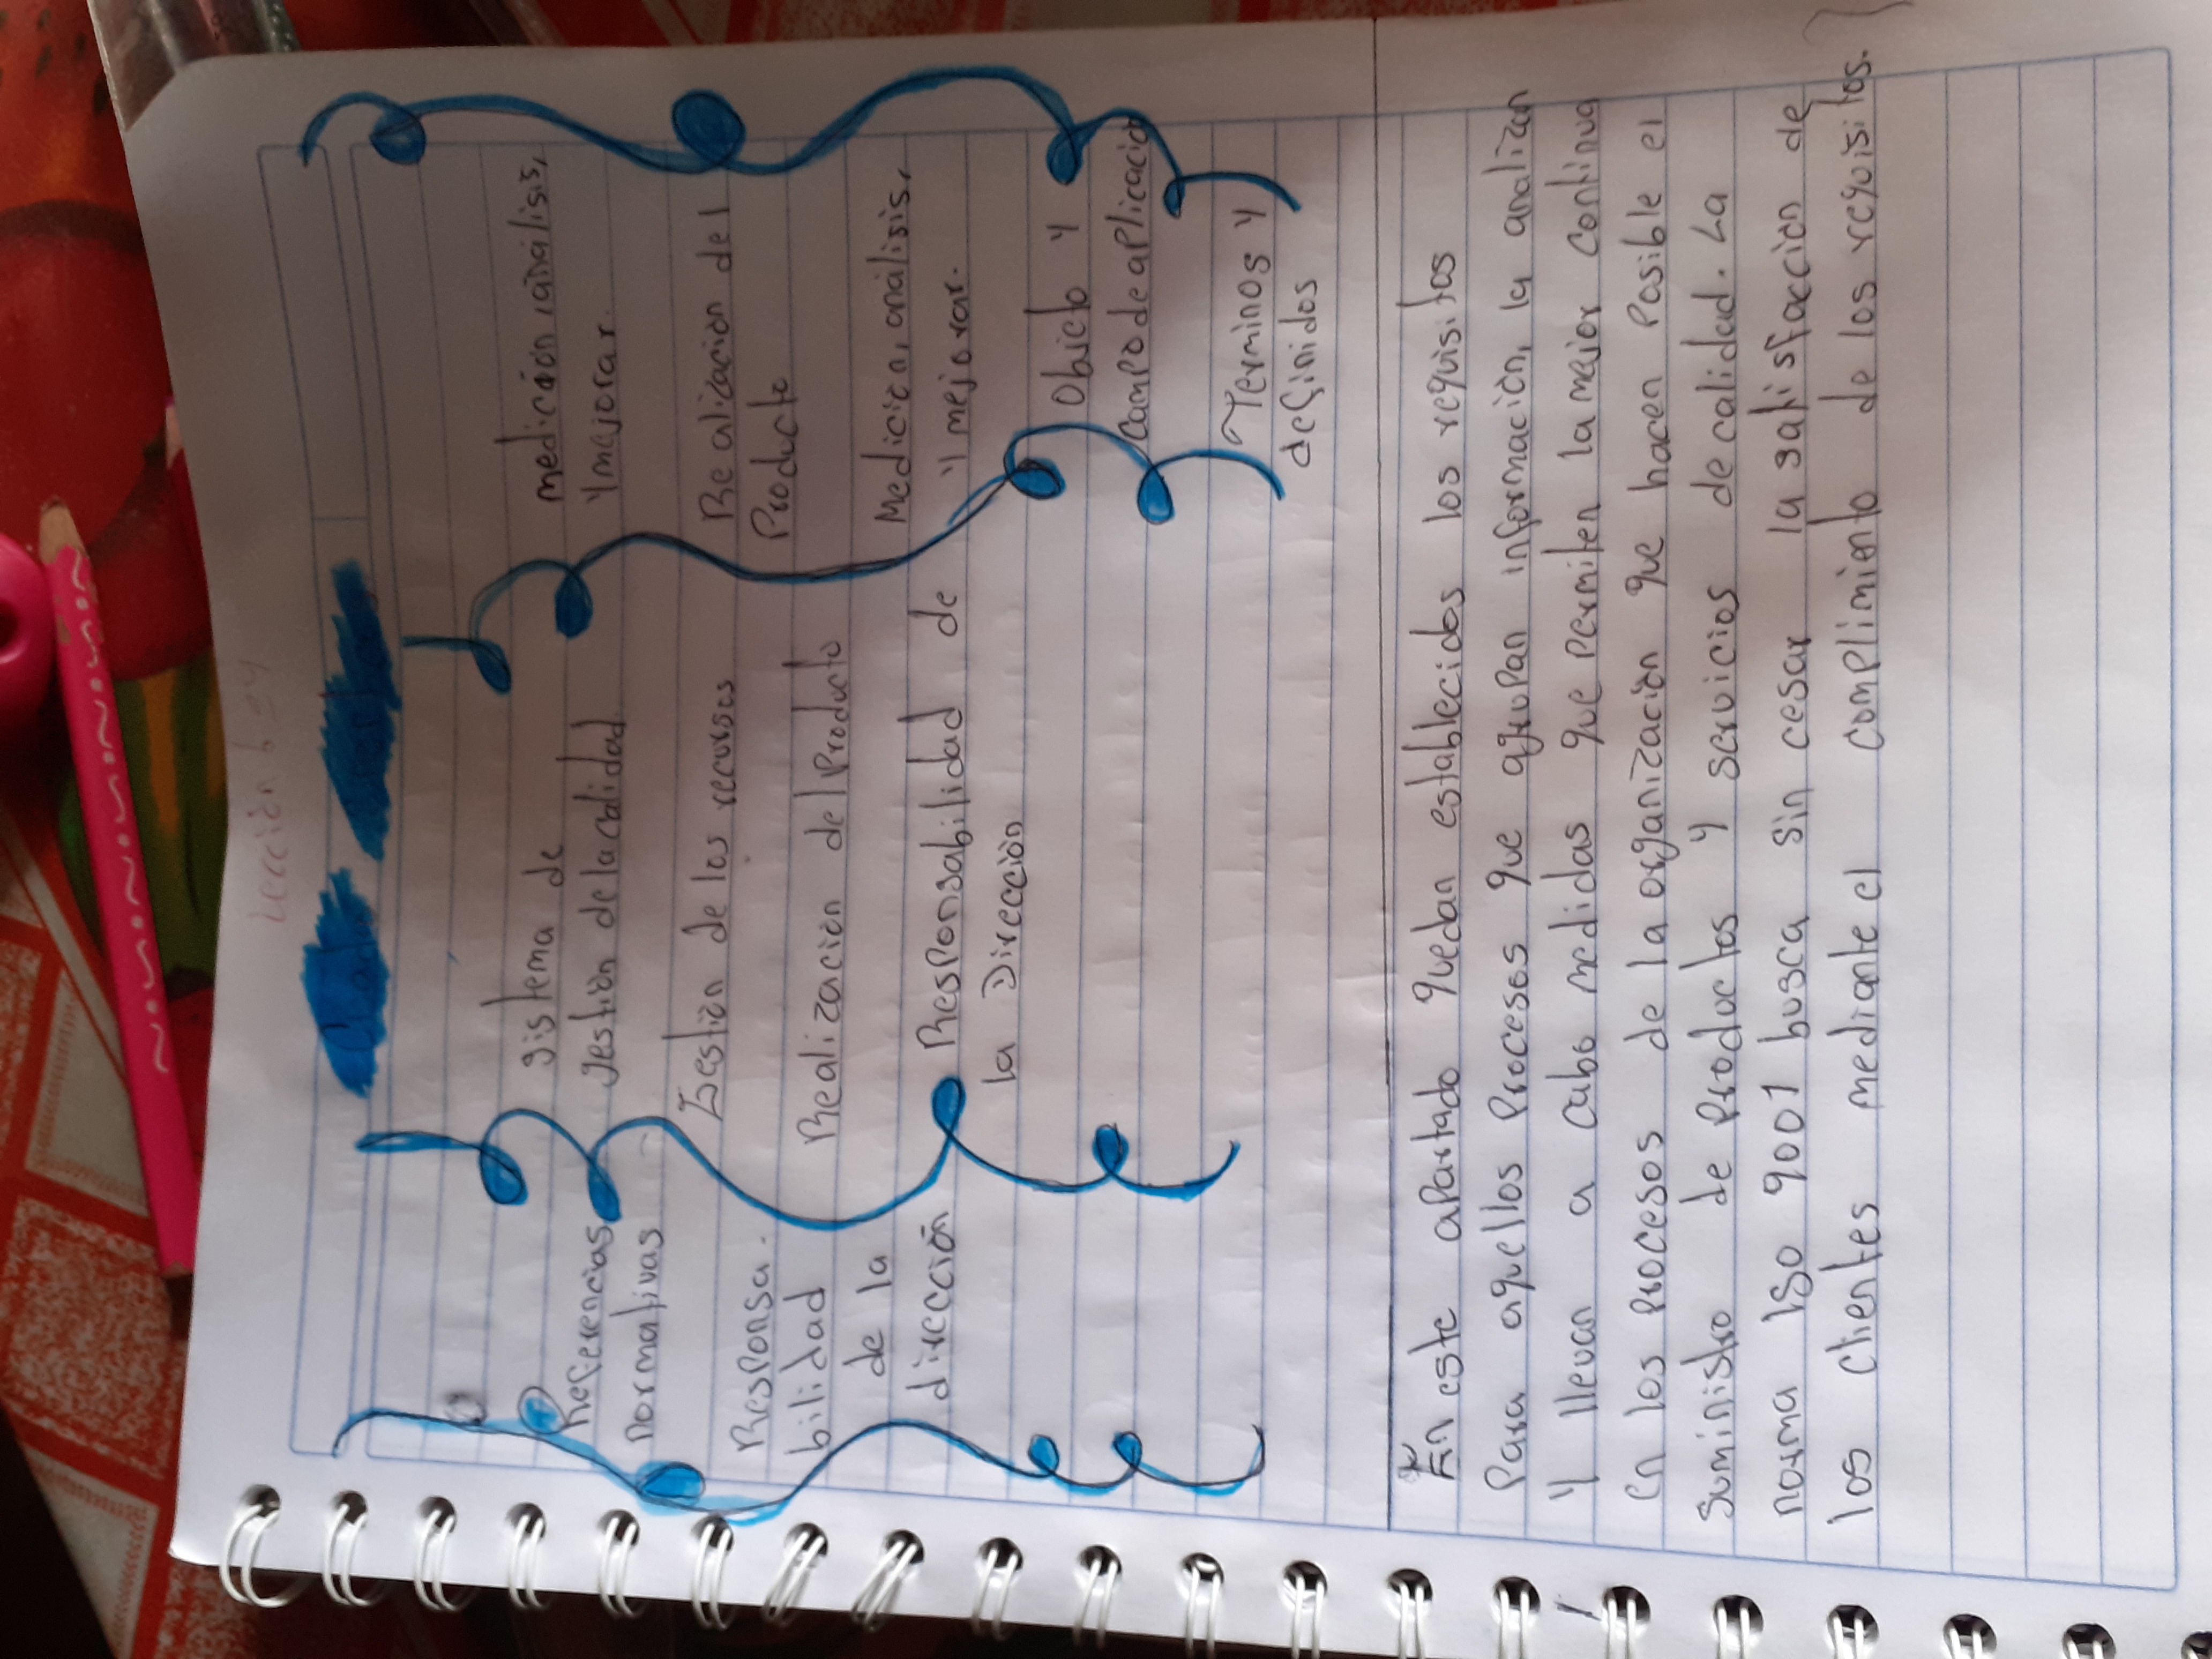 Lección 6
Referencias
normativas
Responsa-
bilidad
de la
dirección
Sistema de
gestiòn de la calidad
Gestiòn de los recursos
Realizaciòn del Producto
Responsabilidad de
la Direcciòn
mediciòn, analisis,
y mejorar.
Realizacion del
Producto
Medicion, analisis,
y mejorar.
Objeto y
Campo de aplicaciòn
Terminos y
definidos
En este apartado quedan establecidos los requisitos
Para aquellos Procesos que agrupan informaciòn, la analizan
y llevan a cabo medidas que permiten la mejor continua
en los procesos de la organizaciòn que hacen Posible el
suministro de Productos y servicios de calidad. La
norma ISO 9001 busca sin cesar la satisfaciòn de
los clientes mediante el complimiento de los requisitos.